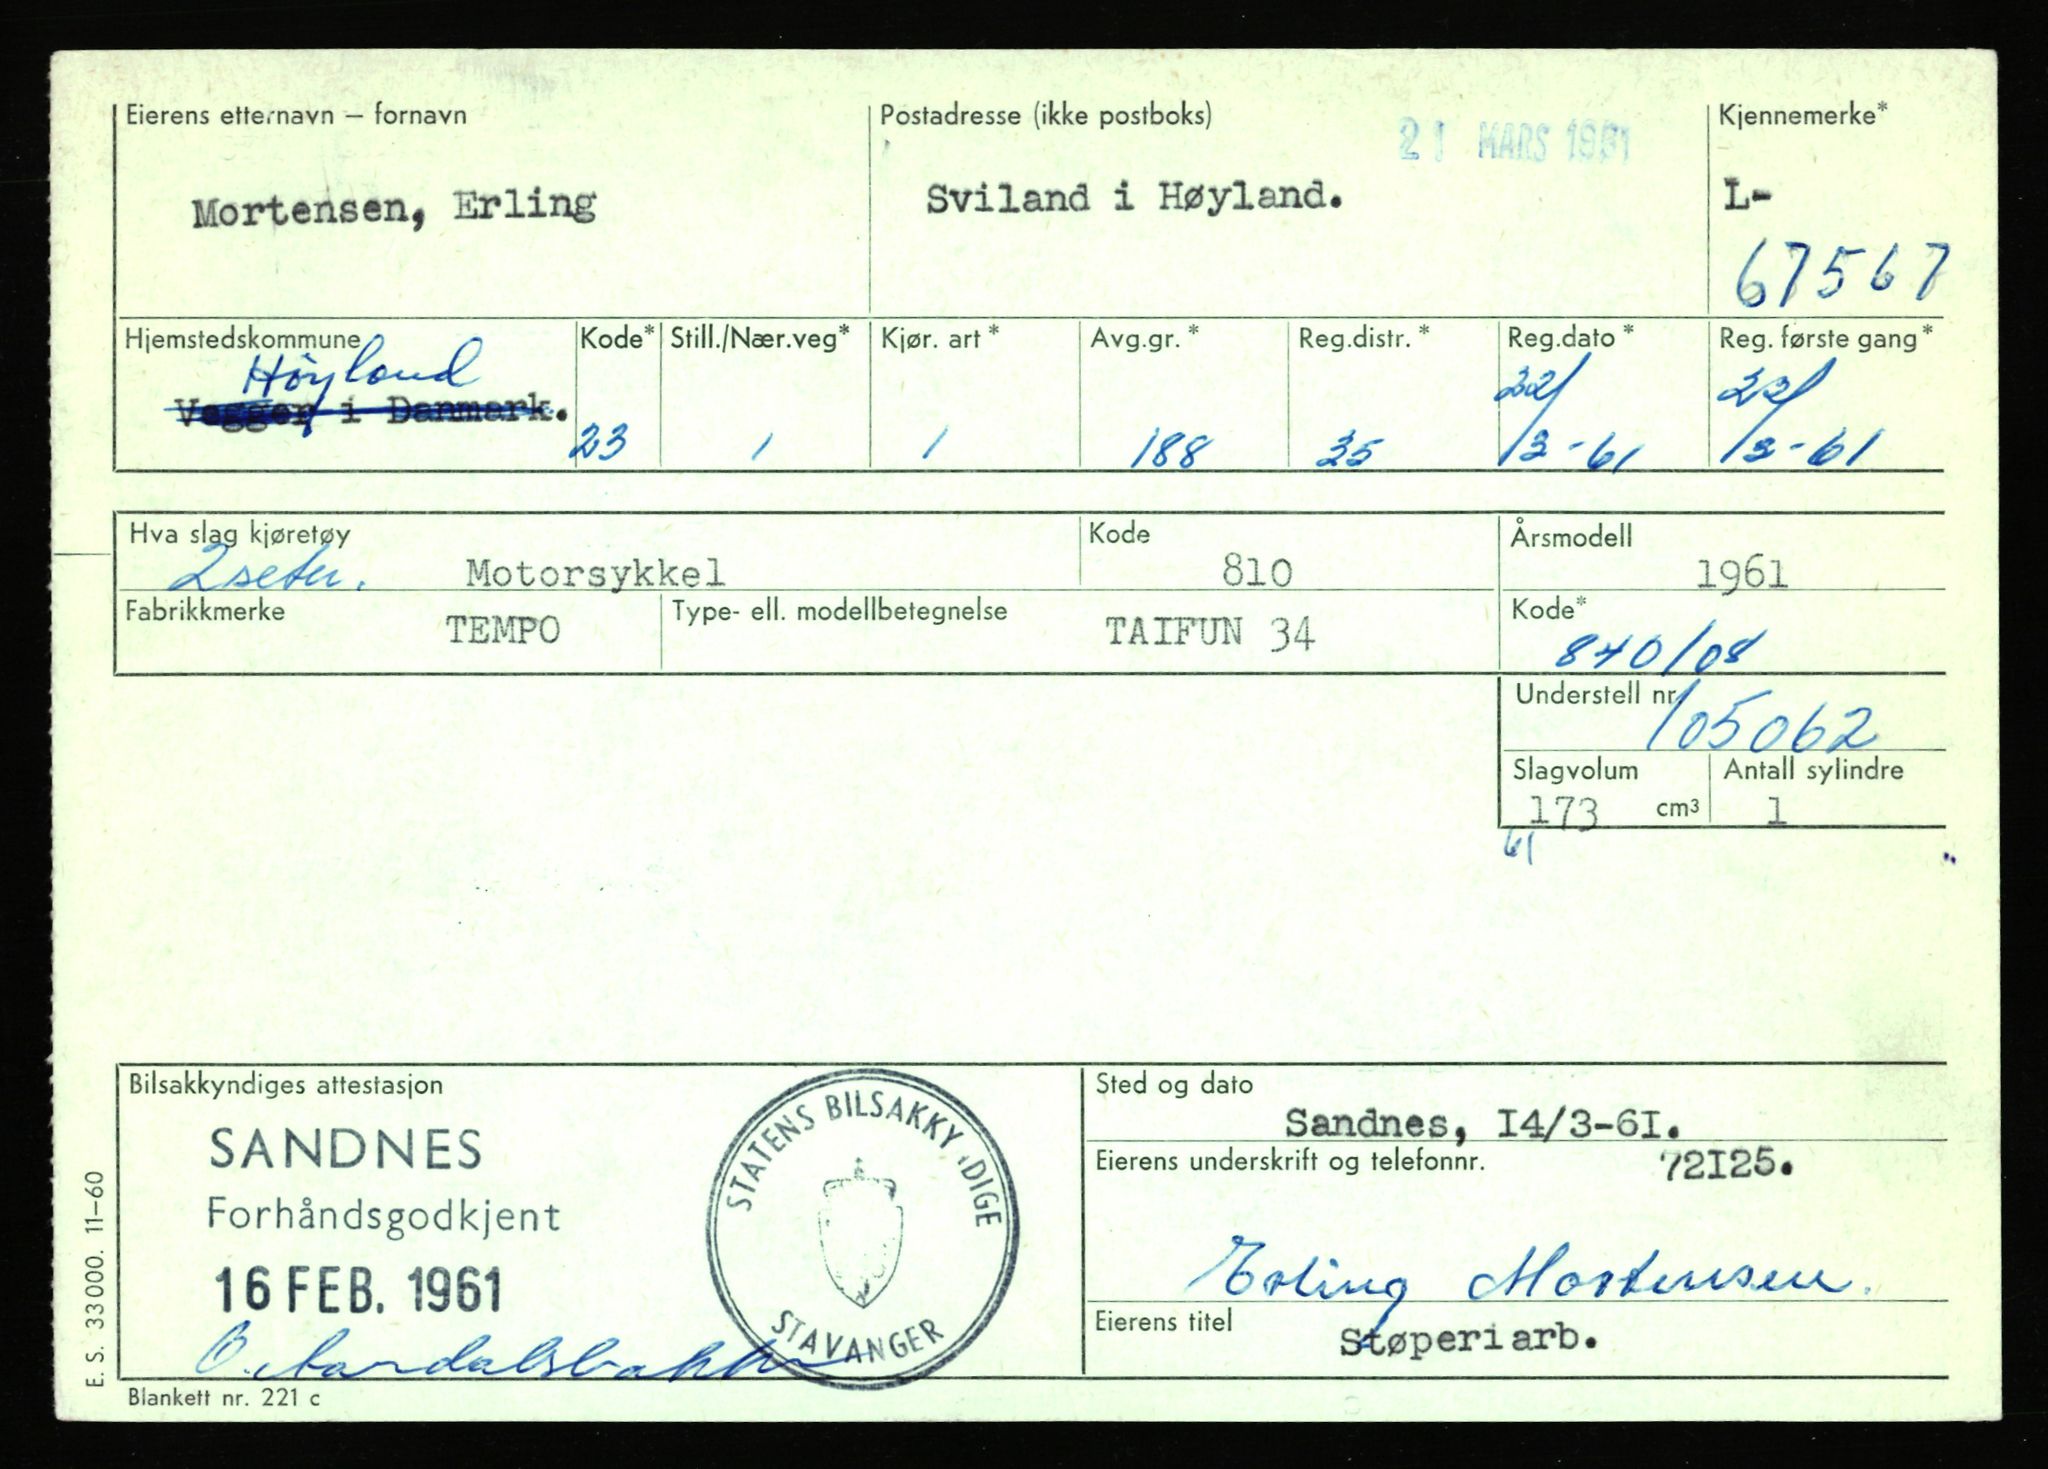 Eierens etternavn – fornavn
Postadresse (ikke postboks)
21 MARS 1961
Kjennemerke*
Mortensen, Erling
Sviland i Høyland.
L-
67567
Hjemstedskommune
Kode*
Still./Nær.veg*
Kjør. art*
Avg.gr.*
Reg.distr.*
Reg.dato*
Reg. første gang*
Høyland
Vegger i Danmark.
23
1
1
188
35
22/3-61
22/3-61
Hva slag kjøretøy
2seter. Motorsykkel
Kode
810
Årsmodell
1961
Fabrikkmerke
TEMPO
Type- ell. modellbetegnelse
TAIFUN 34
Kode*
840/08
Understell nr
105062
Slagvolum
173 cm³
Antall sylindre
1
61
Bilsakkyndiges attestasjon
SANDNES
Forhåndsgodkjent
16 FEB. 1961
STATENS BILSAKKYNDIGE
STAVANGER
Sted og dato
Sandnes, I4/3-6I.
Eierens underskrift og telefonnr.
72I25.
Erling Mortensen.
Eierens titel
Støperiarb.
E. S. 33000. 11–60
Blankett nr. 221 c